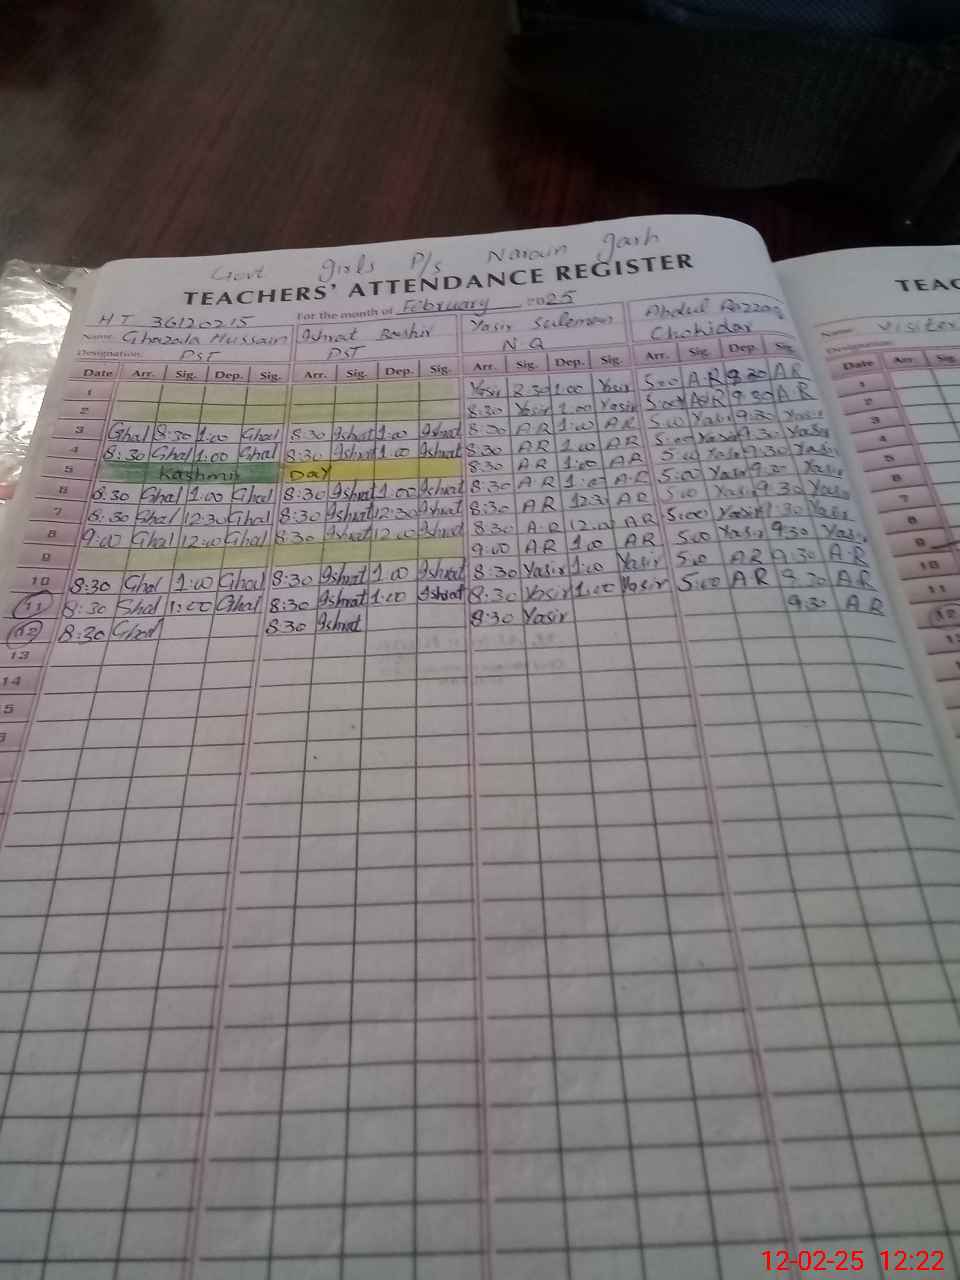 Govt girls P/s Narain garh
TEACHERS' ATTENDANCE REGISTER
HT 36120215 For the month of February 2025
Name: Ghazala Hussain Ishrat Bashir Yasir Suleman Abdul Razzaq
Designation: PST PST N.Q Chokidar
Date Arr. Sig. Dep. Sig. Arr. Sig. Dep. Sig. Arr. Sig. Dep. Sig. Arr. Sig. Dep. Sig.
1 Yasir 8:30 1:00 Yasir 5:00 A.R 9:30 AR
2 8:30 Yasir 1:00 Yasir 5:00 A.R 9:30 A.R
3 Ghal 8:30 1:00 Ghal 8:30 Ishrat 1:00 Ishrat 8:30 AR 1:00 AR 5:00 Yasir 9:30 Yasir
4 8:30 Ghal 1:00 Ghal 8:30 Ishrat 1:00 Ishrat 8:30 AR 1:00 AR 5:00 Yasir 9:30 Yasir
5 Kashmir DAY 8:30 AR 1:00 AR 5:00 Yasir 9:30 Yasir
6 8:30 Ghal 1:00 Ghal 8:30 Ishrat 1:00 Ishrat 8:30 A.R 1:00 A.R 5:00 Yasir 9:30 Yasir
7 8:30 Ghal 12:30 Ghal 8:30 Ishrat 12:30 Ishrat 8:30 AR 12:30 AR 5:00 Yasir 9:30 Yasir
8 9:00 Ghal 12:00 Ghal 8:30 Ishrat 12:00 Ishrat 8:30 A.R 12:00 AR 5:00 Yasir 9:30 Yasir
9 9:00 AR 1:00 AR 5:00 Yasir 9:30 Yasir
10 8:30 Ghal 1:00 Ghal 8:30 Ishrat 1:00 Ishrat 8:30 Yasir 1:00 Yasir 5:00 AR 9:30 A.R
11 8:30 Ghal 1:00 Ghal 8:30 Ishrat 1:00 Ishrat 8:30 Yasir 1:00 Yasir 5:00 AR 9:30 AR
12 8:30 Ghal 8:30 Ishrat 8:30 Yasir 9:30 AR
13
14
TEAC
Name: Visiter
Designation:
Date Arr. Sig.
1
2
3
4
5
6
7
8
9
10
11
12
12-02-25 12:22